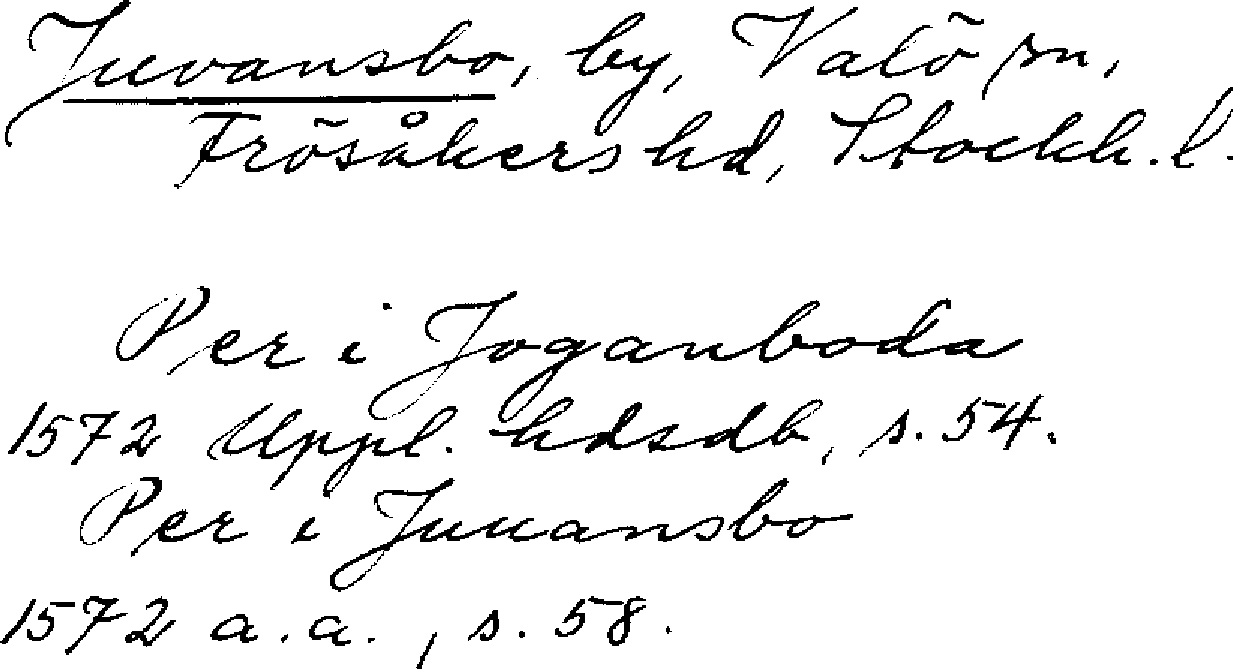 Juvansbo, by, Valö sn,
Frösåkers hd, Stockh. l.
Per i Joganboda
1572 Uppl. hdsdb, s. 54.
Per i Juuansbo
1572 a.a., s. 58.